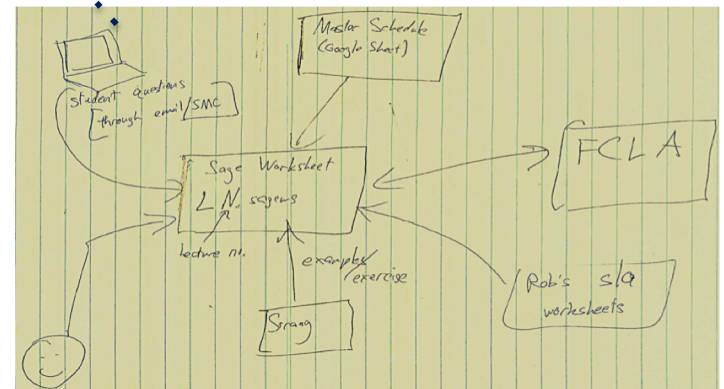 Master Schedule
(Google Sheet)
student questions
through email/SMC
FCLA
Sage Worksheet
LN.sagews
lecture no.
examples/
exercise
Rob's sla
worksheets
Strang